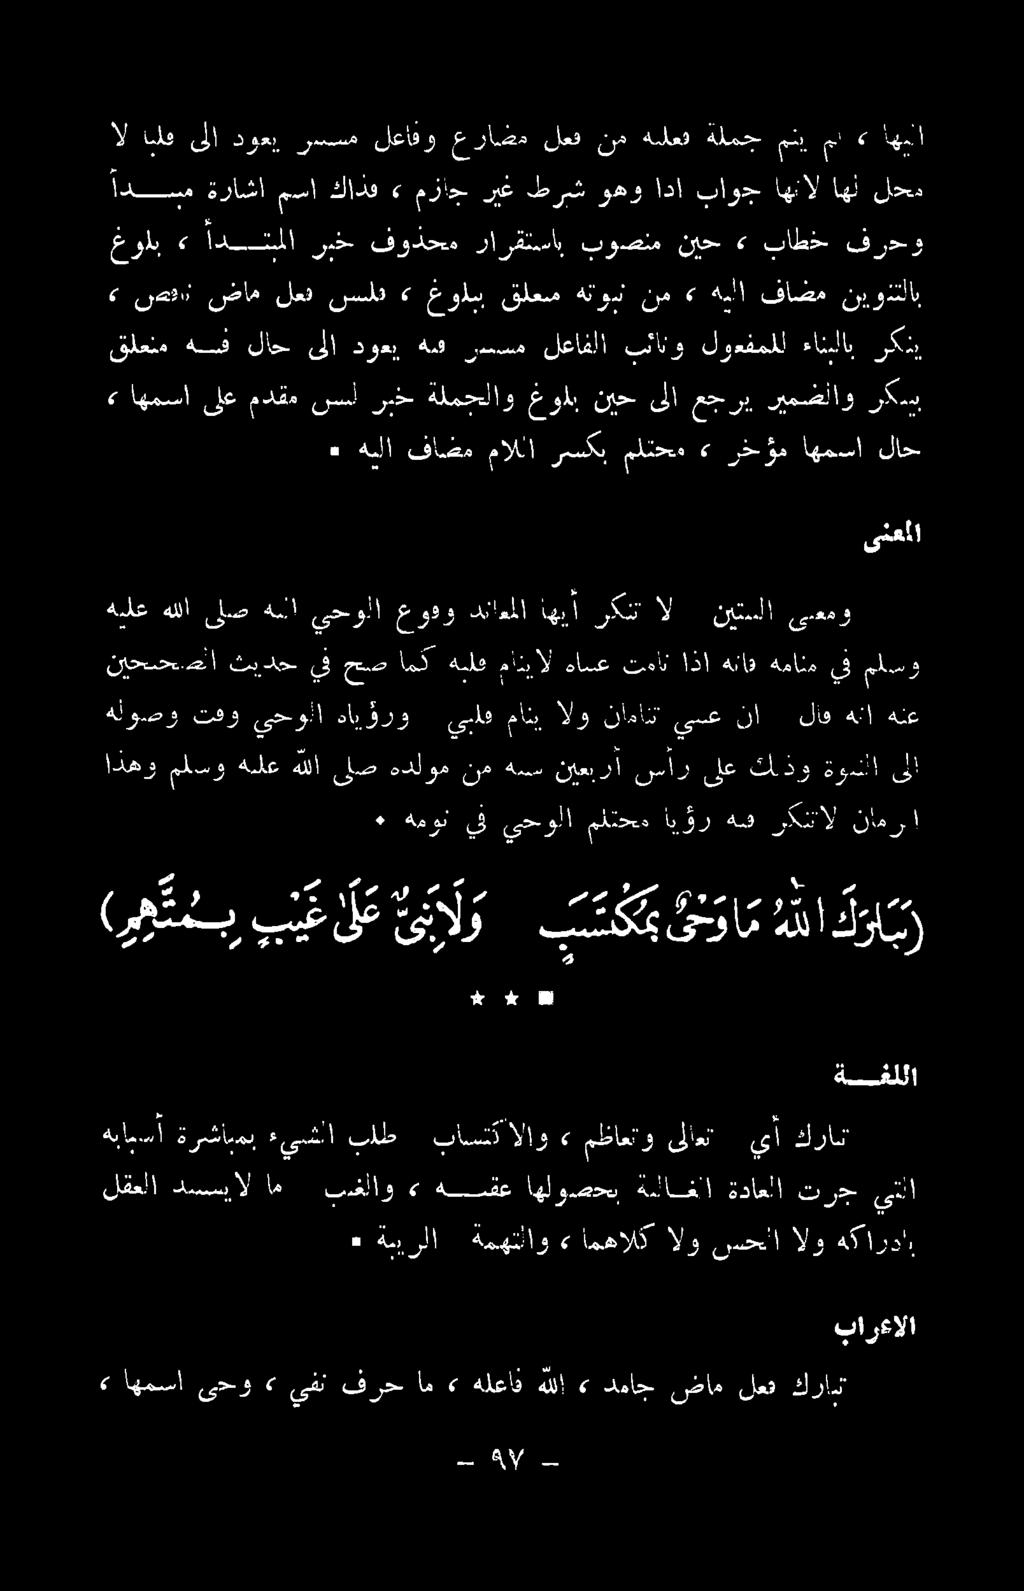 انيها ، لم ينم جملة فعلية من فعل مضارع وفاعل مستتر يعود الى قلبا لا
محل لها لأنها جواب اذا وهو شرط غير جازم ، فذاك اسم اشارة مبتدأ
وحرف خطاب ، حين منصوب باستقرار محذوف خبر المبتدأ ، بلوغ
بالتنوين مضاف اليه ، من نبوته متعلق ببلوغ ، فليس فعل ماض ناقص ،
ينكر بالبناء للمفعول ونائب الفاعل مستتر فيه يعود الى حال فيه متعلق
بينكر والضمير يرجع الى حين بلوغ والجملة خبر ليس مقدم على اسمها ،
حال اسمها مؤخر ، محتلم بكسر اللام مضاف اليه ٠
المعنى
ومعنى البيتين لا تنكر أيها المعاند وقوع الوحي اليه صلى الله عليه
وسلم في منامه فانه اذا نامت عيناه لاينام قلبه كما صح في حديث الصحيحين
عنه انه قال ان عيني تنامان ولا ينام قلبي ورؤياه الوحي وقت وصوله
الى النبوة وذلك على رأس أربعين سنة من مولده صلى الله عليه وسلم وهذا
الزمان لاتنكر فيه رؤيا محتلم الوحي في نومه ٠
(تَبَارَكَ اللهُ مَاوَحْىٌ بِمُكْتَسَبٍ وَلَانَبِىٌّ عَلَىٰ غَيْبٍ بِمُتَّهِمِ)
★ ★ ■
اللغـــة
تبارك أي تعالى وتعاظم ، والاكتساب طلب الشيء بمباشرة أسبابه
التي جرت العادة الغالبة بحصولها عقبه ، والغيب ما لايستبد العقل
بادراكه ولا الحس ولا كلاهما ، والتهمة الريبة ٠
الاعراب
تبارك فعل ماض جامد ، الله فاعله ، ما حرف نفي ، وحى اسمها ،
– ٩٧ –